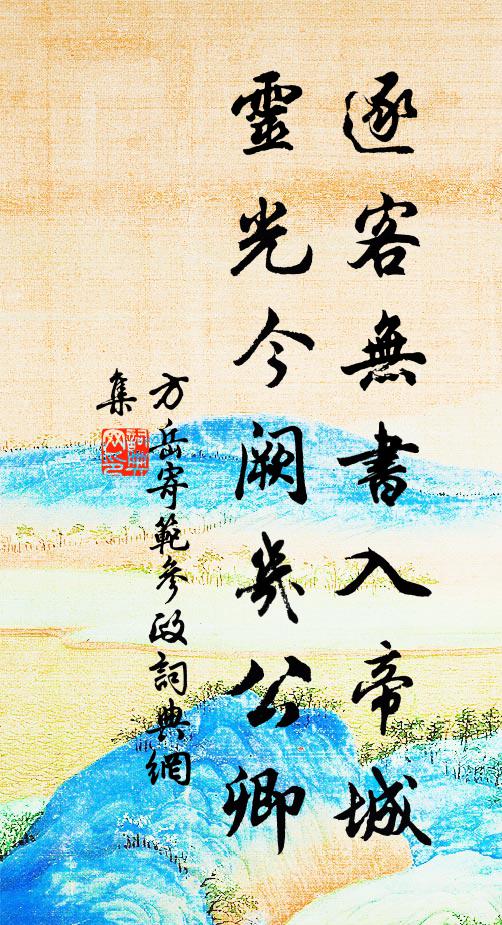 逐客無書入帝城
靈光今闕幾公卿
方岳寄範參政詞典網
集